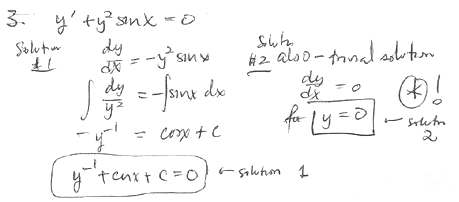 3. y' + y² sin x = 0
Solution #1
dy/dx = -y² sin x
∫ dy/y² = -∫ sin x dx
-y⁻¹ = cos x + c
y⁻¹ + cos x + C = 0 ← solution 1
#2 also - trivial solution
dy/dx = 0 * !
for y = 0 ← solution 2